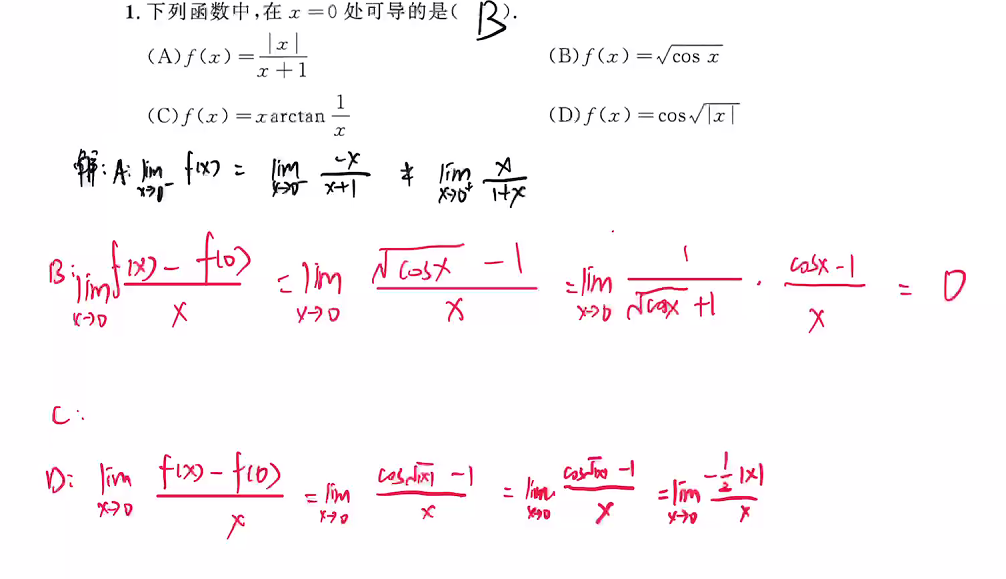 1. 下列函数中,在 x=0 处可导的是( B ).
(A) f(x)=|x|/(x+1) (B) f(x)=√(cos x)
(C) f(x)=x arctan 1/x (D) f(x)=cos√|x|
解: A: lim x→0⁻ f(x) = lim x→0⁻ -x/(x+1) ≠ lim x→0⁺ x/(1+x)
B: lim x→0 (f(x)-f(0))/x = lim x→0 (√(cosx) -1)/x = lim x→0 1/(√(cosx)+1) · (cosx-1)/x = 0
C:
D: lim x→0 (f(x)-f(0))/x = lim x→0 (cos√|x| -1)/x = lim x→0 (cos√|x| -1)/x = lim x→0 (-1/2|x|)/x